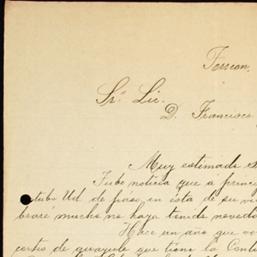 Torreon,
Sr. Lic.
D. Francisco
Muy estimado
Tube noticia que á princi
estubo Ud. de paso en esta de su vi
braré mucho no haya tenido noveda
Hace un año que
cortes de guayule que tiene la Cont